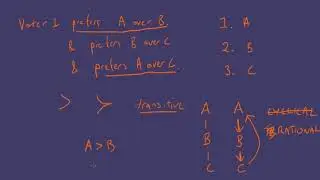 Voter 1 prefers A over B
& prefers B over C
& prefers A over C.
1. A
2. B
3. C
> ≻ transitive
A A CYCLICAL
RATIONAL
B B
C C
A > B